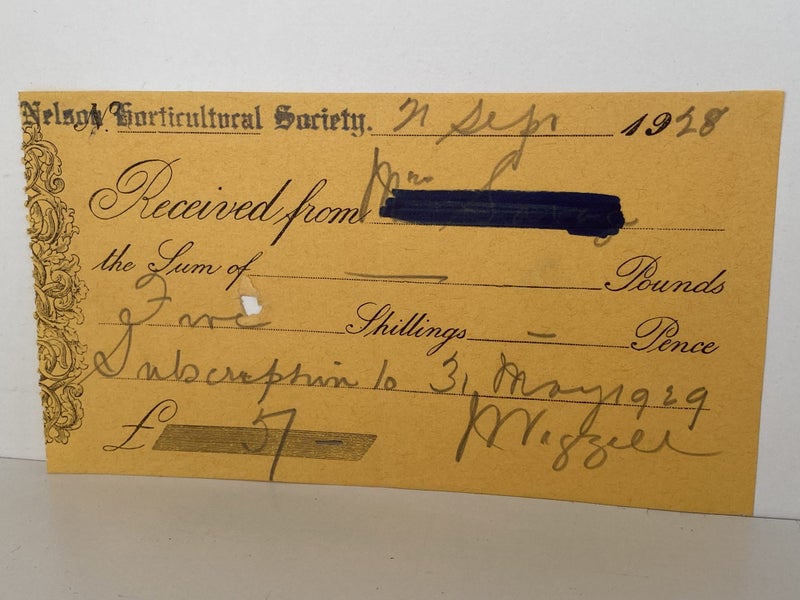 Nelson Horticultural Society. 21 Sept 1928
Received from Mrs
the Sum of — Pounds
Five Shillings – Pence
Subscription to 31 May 1929
£ 5/- J Wigzell